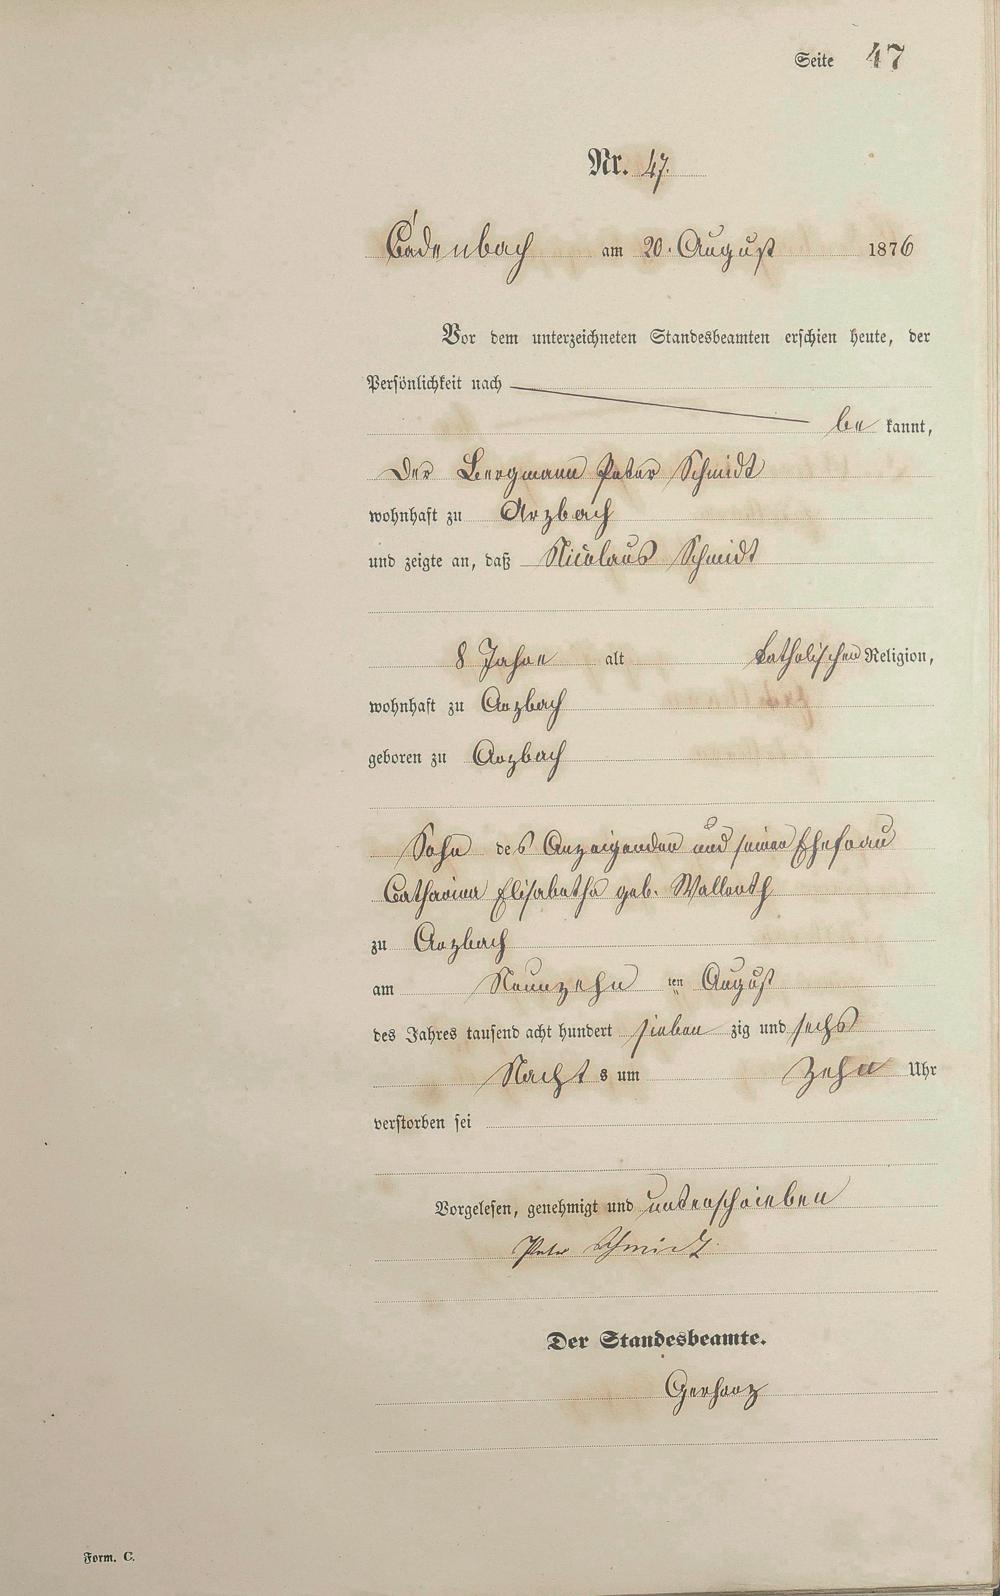 Seite 47
Nr. 47.
Cadenbach am 20. August 1876
Vor dem unterzeichneten Standesbeamten erschien heute, der
Persönlichkeit nach
be kannt,
Der Bergmann Peter Schmidt
wohnhaft zu Arzbach
und zeigte an, daß Nicolaus Schmidt
8 Jahre alt katholischen Religion,
wohnhaft zu Arzbach
geboren zu Arzbach
Sohn des Anzeigenden und seiner Ehefrau
Catharina Elisabetha geb. Wallroth
zu Arzbach
am Neunzehn ten August
des Jahres tausend acht hundert sieben zig und sechs
Nacht s um Zehn Uhr
verstorben sei
Vorgelesen, genehmigt und unterschrieben
Peter Schmidt
Der Standesbeamte.
Gerharz
Form. C.